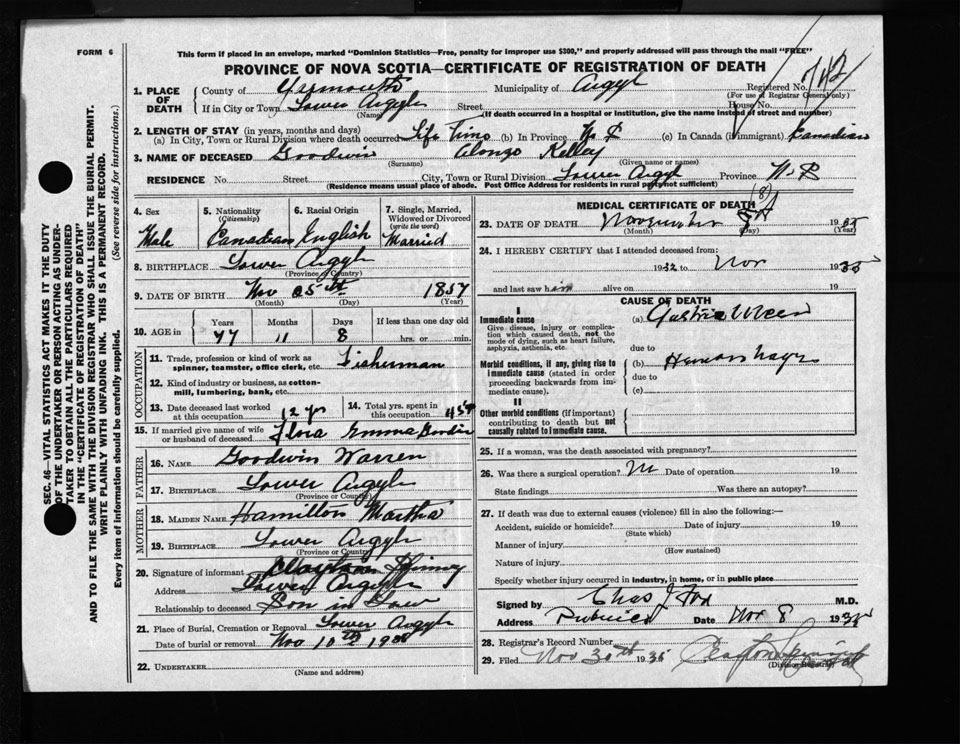 FORM 6
This form if placed in an envelope, marked "Dominion Statistics—Free, penalty for improper use $300," and properly addressed will pass through the mail "FREE"
PROVINCE OF NOVA SCOTIA—CERTIFICATE OF REGISTRATION OF DEATH
SEC. 46—VITAL STATISTICS ACT MAKES IT THE DUTY
OF THE UNDERTAKER OR PERSON ACTING AS UNDER-
TAKER TO OBTAIN ALL THE PARTICULARS REQUIRED
IN THE "CERTIFICATE OF REGISTRATION OF DEATH"
AND TO FILE THE SAME WITH THE DIVISION REGISTRAR WHO SHALL ISSUE THE BURIAL PERMIT.
WRITE PLAINLY WITH UNFADING INK. THIS IS A PERMANENT RECORD.
Every item of information should be carefully supplied. (See reverse side for instructions.)
1. PLACE OF DEATH County of Yarmouth Municipality of Argyl Registered No.
(For use of Registrar General only)
If in City or Town Lower Argyle Street House No.
(Name) (If death occurred in a hospital or institution, give the name instead of street and number)
2. LENGTH OF STAY (in years, months and days)
(a) In City, Town or Rural Division where death occurred Life Time (b) In Province (c) In Canada (if immigrant) Canadian
3. NAME OF DECEASED Goodwin Alonzo Kelley
(Surname) (Given name or names)
RESIDENCE No. Street City, Town or Rural Division Lower Argyl Province
(Residence means usual place of abode. Post Office Address for residents in rural parts not sufficient)
4. Sex Male
5. Nationality (Citizenship) Canadian
6. Racial Origin English
7. Single, Married, Widowed or Divorced (write the word) Married
8. BIRTHPLACE Lower Argyle
(Province or Country)
9. DATE OF BIRTH Nov 1857
(Month) (Day) (Year)
10. AGE in Years Months Days If less than one day old
77 11 8 hrs. or min.
OCCUPATION
11. Trade, profession or kind of work as spinner, teamster, office clerk, etc. Fisherman
12. Kind of industry or business, as cotton-mill, lumbering, bank, etc.
13. Date deceased last worked at this occupation 12 yrs
14. Total yrs. spent in this occupation 45
15. If married give name of wife or husband of deceased Flora Emma
FATHER
16. NAME Goodwin Warren
17. BIRTHPLACE Lower Argyle
(Province or Country)
MOTHER
18. MAIDEN NAME Hamilton Martha
19. BIRTHPLACE Lower Argyle
(Province or Country)
20. Signature of informant
Address Lower Argyle
Relationship to deceased Son in Law
21. Place of Burial, Cremation or Removal Lower Argyle
Date of burial or removal Nov 10th 1935
22. UNDERTAKER
(Name and address)
MEDICAL CERTIFICATE OF DEATH
23. DATE OF DEATH November (8) 1935
(Month) (Day) (Year)
24. I HEREBY CERTIFY that I attended deceased from:
1932 to Nov 1935
and last saw him alive on 19
CAUSE OF DEATH
I
Immediate cause
Give disease, injury or complication which caused death, not the mode of dying, such as heart failure, asphyxia, asthenia, etc.
(a) Gastric Ulcer
due to
Morbid conditions, if any, giving rise to immediate cause (stated in order proceeding backwards from immediate cause).
(b)
due to
(c)
II
Other morbid conditions (if important) contributing to death but not causally related to immediate cause.
25. If a woman, was the death associated with pregnancy?
26. Was there a surgical operation? Date of operation 19
State findings Was there an autopsy?
27. If death was due to external causes (violence) fill in also the following:—
Accident, suicide or homicide? Date of injury 19
(State which)
Manner of injury
(How sustained)
Nature of injury
Specify whether injury occurred in industry, in home, or in public place
Signed by Chas J Fox M.D.
Address Pubnico Date Nov 8 1935
28. Registrar's Record Number
29. Filed Nov 30th 1935
(Division Registrar)